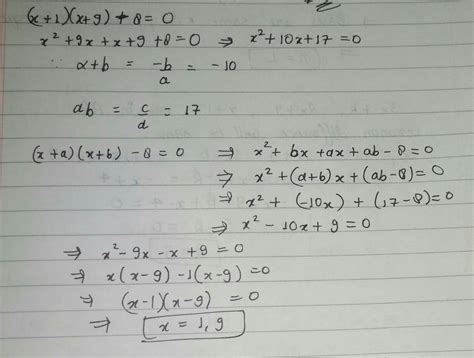 (x+1)(x+9)+8=0
x²+9x+x+9+8=0 ⇒ x²+10x+17=0
∵ α+b = -b/a = -10
ab = c/d = 17
(x+a)(x+b)-8=0 ⇒ x²+bx+ax+ab-8=0
⇒ x²+(a+b)x+(ab-8)=0
⇒ x²+(-10x)+(17-8)=0
⇒ x²-10x+9=0
⇒ x²-9x-x+9=0
⇒ x(x-9)-1(x-9)=0
⇒ (x-1)(x-9)=0
⇒ x=1,9